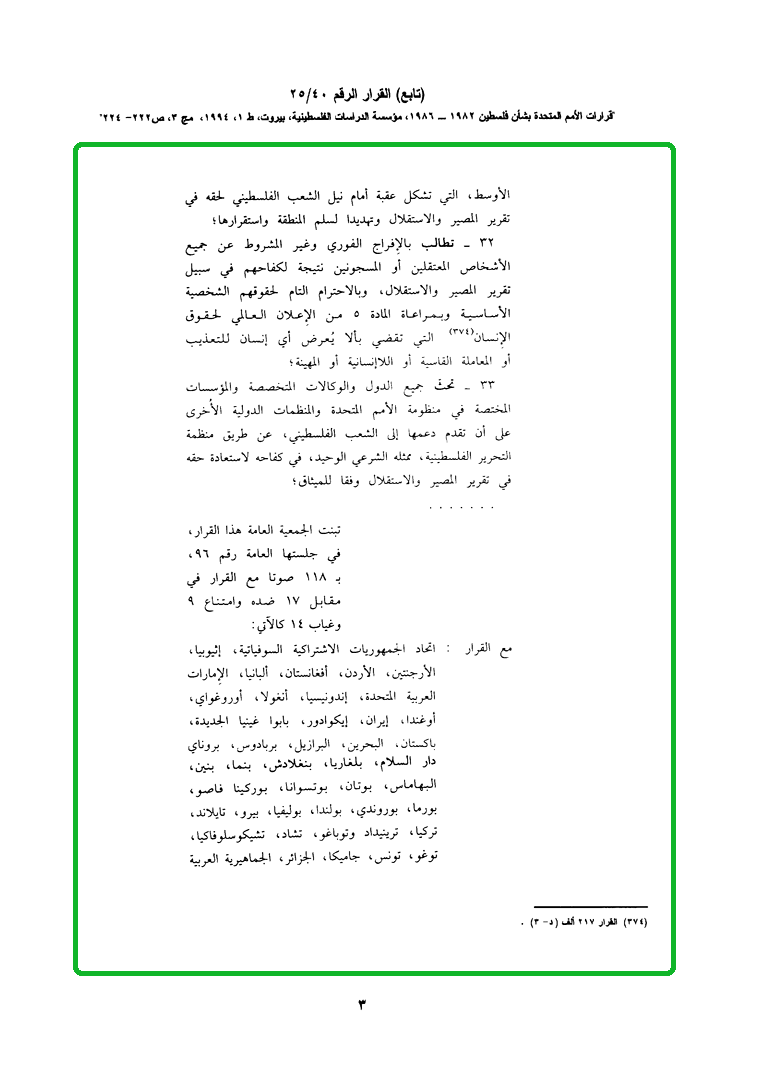 (تابع) القرار الرقم ٢٥/٤٠
"قرارات الأمم المتحدة بشأن فلسطين ١٩٨٢ ــ ١٩٨٦، مؤسسة الدراسات الفلسطينية، بيروت، ط ١، ١٩٩٤، مج ٣، ص٢٢٢- ٢٢٤"
الأوسط، التي تشكل عقبة أمام نيل الشعب الفلسطيني لحقه في
تقرير المصير والاستقلال وتهديدا لسلم المنطقة واستقرارها؛
٣٢ ـ تطالب بالإفراج الفوري وغير المشروط عن جميع
الأشخاص المعتقلين أو المسجونين نتيجة لكفاحهم في سبيل
تقرير المصير والاستقلال، وبالاحترام التام لحقوقهم الشخصية
الأساسية وبمراعاة المادة ٥ من الإعلان العالمي لحقوق
الإنسان(٣٧٤) التي تقضي بألا يُعرض أي إنسان للتعذيب
أو المعاملة القاسية أو اللاإنسانية أو المهينة؛
٣٣ ـ تحثّ جميع الدول والوكالات المتخصصة والمؤسسات
المختصة في منظومة الأمم المتحدة والمنظمات الدولية الأخرى
على أن تقدم دعمها إلى الشعب الفلسطيني، عن طريق منظمة
التحرير الفلسطينية، ممثله الشرعي الوحيد، في كفاحه لاستعادة حقه
في تقرير المصير والاستقلال وفقا للميثاق؛
. . . . . . .
تبنت الجمعية العامة هذا القرار،
في جلستها العامة رقم ٩٦،
بـ ١١٨ صوتا مع القرار في
مقابل ١٧ ضده وامتناع ٩
وغياب ١٤ كالآتي:
مع القرار : اتحاد الجمهوريات الاشتراكية السوفياتية، إثيوبيا،
الأرجنتين، الأردن، أفغانستان، ألبانيا، الإمارات
العربية المتحدة، إندونيسيا، أنغولا، أوروغواي،
أوغندا، إيران، إيكوادور، بابوا غينيا الجديدة،
باكستان، البحرين، البرازيل، بربادوس، بروناي
دار السلام، بلغاريا، بنغلادش، بنما، بنين،
البهاماس، بوتان، بوتسوانا، بوركينا فاصو،
بورما، بوروندي، بولندا، بوليفيا، بيرو، تايلاند،
تركيا، ترينيداد وتوباغو، تشاد، تشيكوسلوفاكيا،
توغو، تونس، جاميكا، الجزائر، الجماهيرية العربية
(٣٧٤) القرار ٢١٧ ألف (د- ٣) .
٣